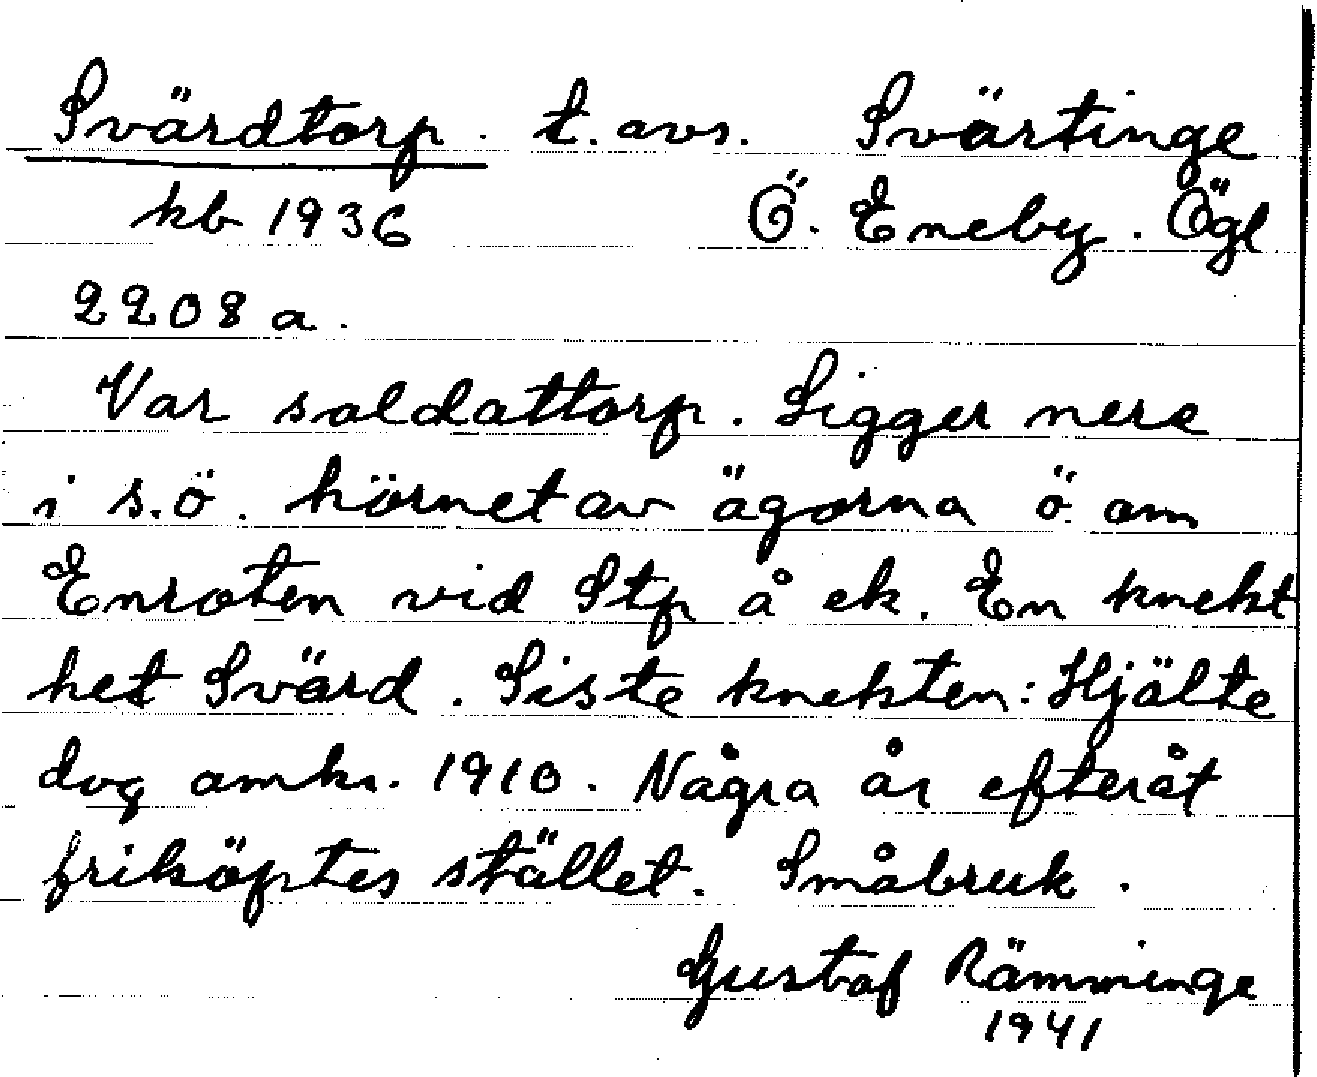 Svärdtorp. t. avs. Svärtinge
kb 1936 Ö. Eneby. Ögl
2208 a.
Var soldattorp. Ligger nere
i s.ö. hörnet av ägorna ö. om
Enroten vid Stp å ek. En knekt
het Svärd. Siste knekten: Hjälte
dog omkr. 1910. Några år efteråt
friköptes stället. Småbruk.
Gustaf Rämminge
1941